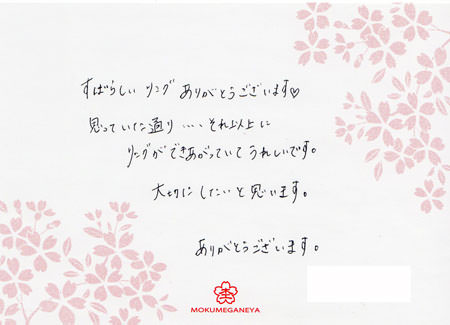 すばらしい リング ありがとうございます♡
思っていた通り・・・、それ以上に
リングができあがっていてうれしいです。
大切にしたいと思います。
ありがとうございます。
MOKUMEGANEYA